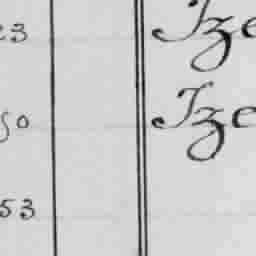 23 Ize
50 Ize
53